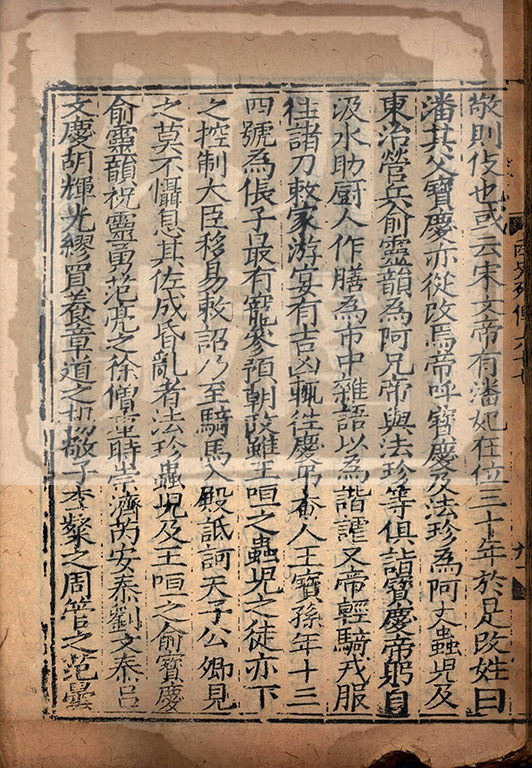 敬則伎也或云宋文帝有潘妃在位三十年於是改姓曰
潘其父寶慶亦從改焉帝呼寶慶及法珍為阿丈蟲児及
東治營兵俞靈韻為阿兄帝與法珍等俱詣寶慶帝躬自
汲水助厨人作膳為市中雜語以為諧謔又帝輕騎戎服
往諸刀敕家游宴有吉凶輒往慶弔奄人王寶孫年十三
四號為倀子最有寵參預朝政雖王咺之蟲児之徒亦下
之控制大臣移易敕詔乃至騎馬入殿詆訶天子公卿見
之莫不懾息其佐成昏亂者法珍蟲児及王咺之俞寶慶
俞靈韻祝靈勇范亮之徐僧重時崇濟芮安泰劉文泰呂
文慶胡輝光繆買養章道之楊敬子李粲之周管之范曇
南史列傳六十七
九